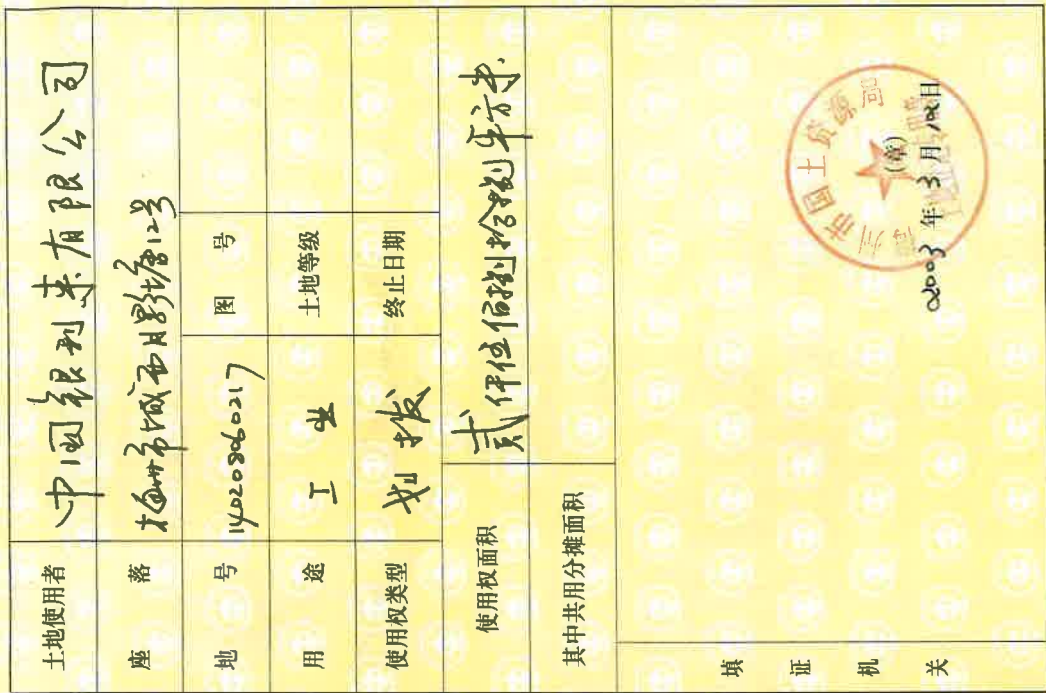 土地使用者 中国银利来有限公司
座落 梅州市城西月影塘12号
地号 140208060217 图号
用途 工业 土地等级
使用权类型 划拨 终止日期
使用权面积 贰仟伍佰捌拾捌平方米
其中共用分摊面积
填证机关
梅州市国土资源局
(章)
2003年3月 日